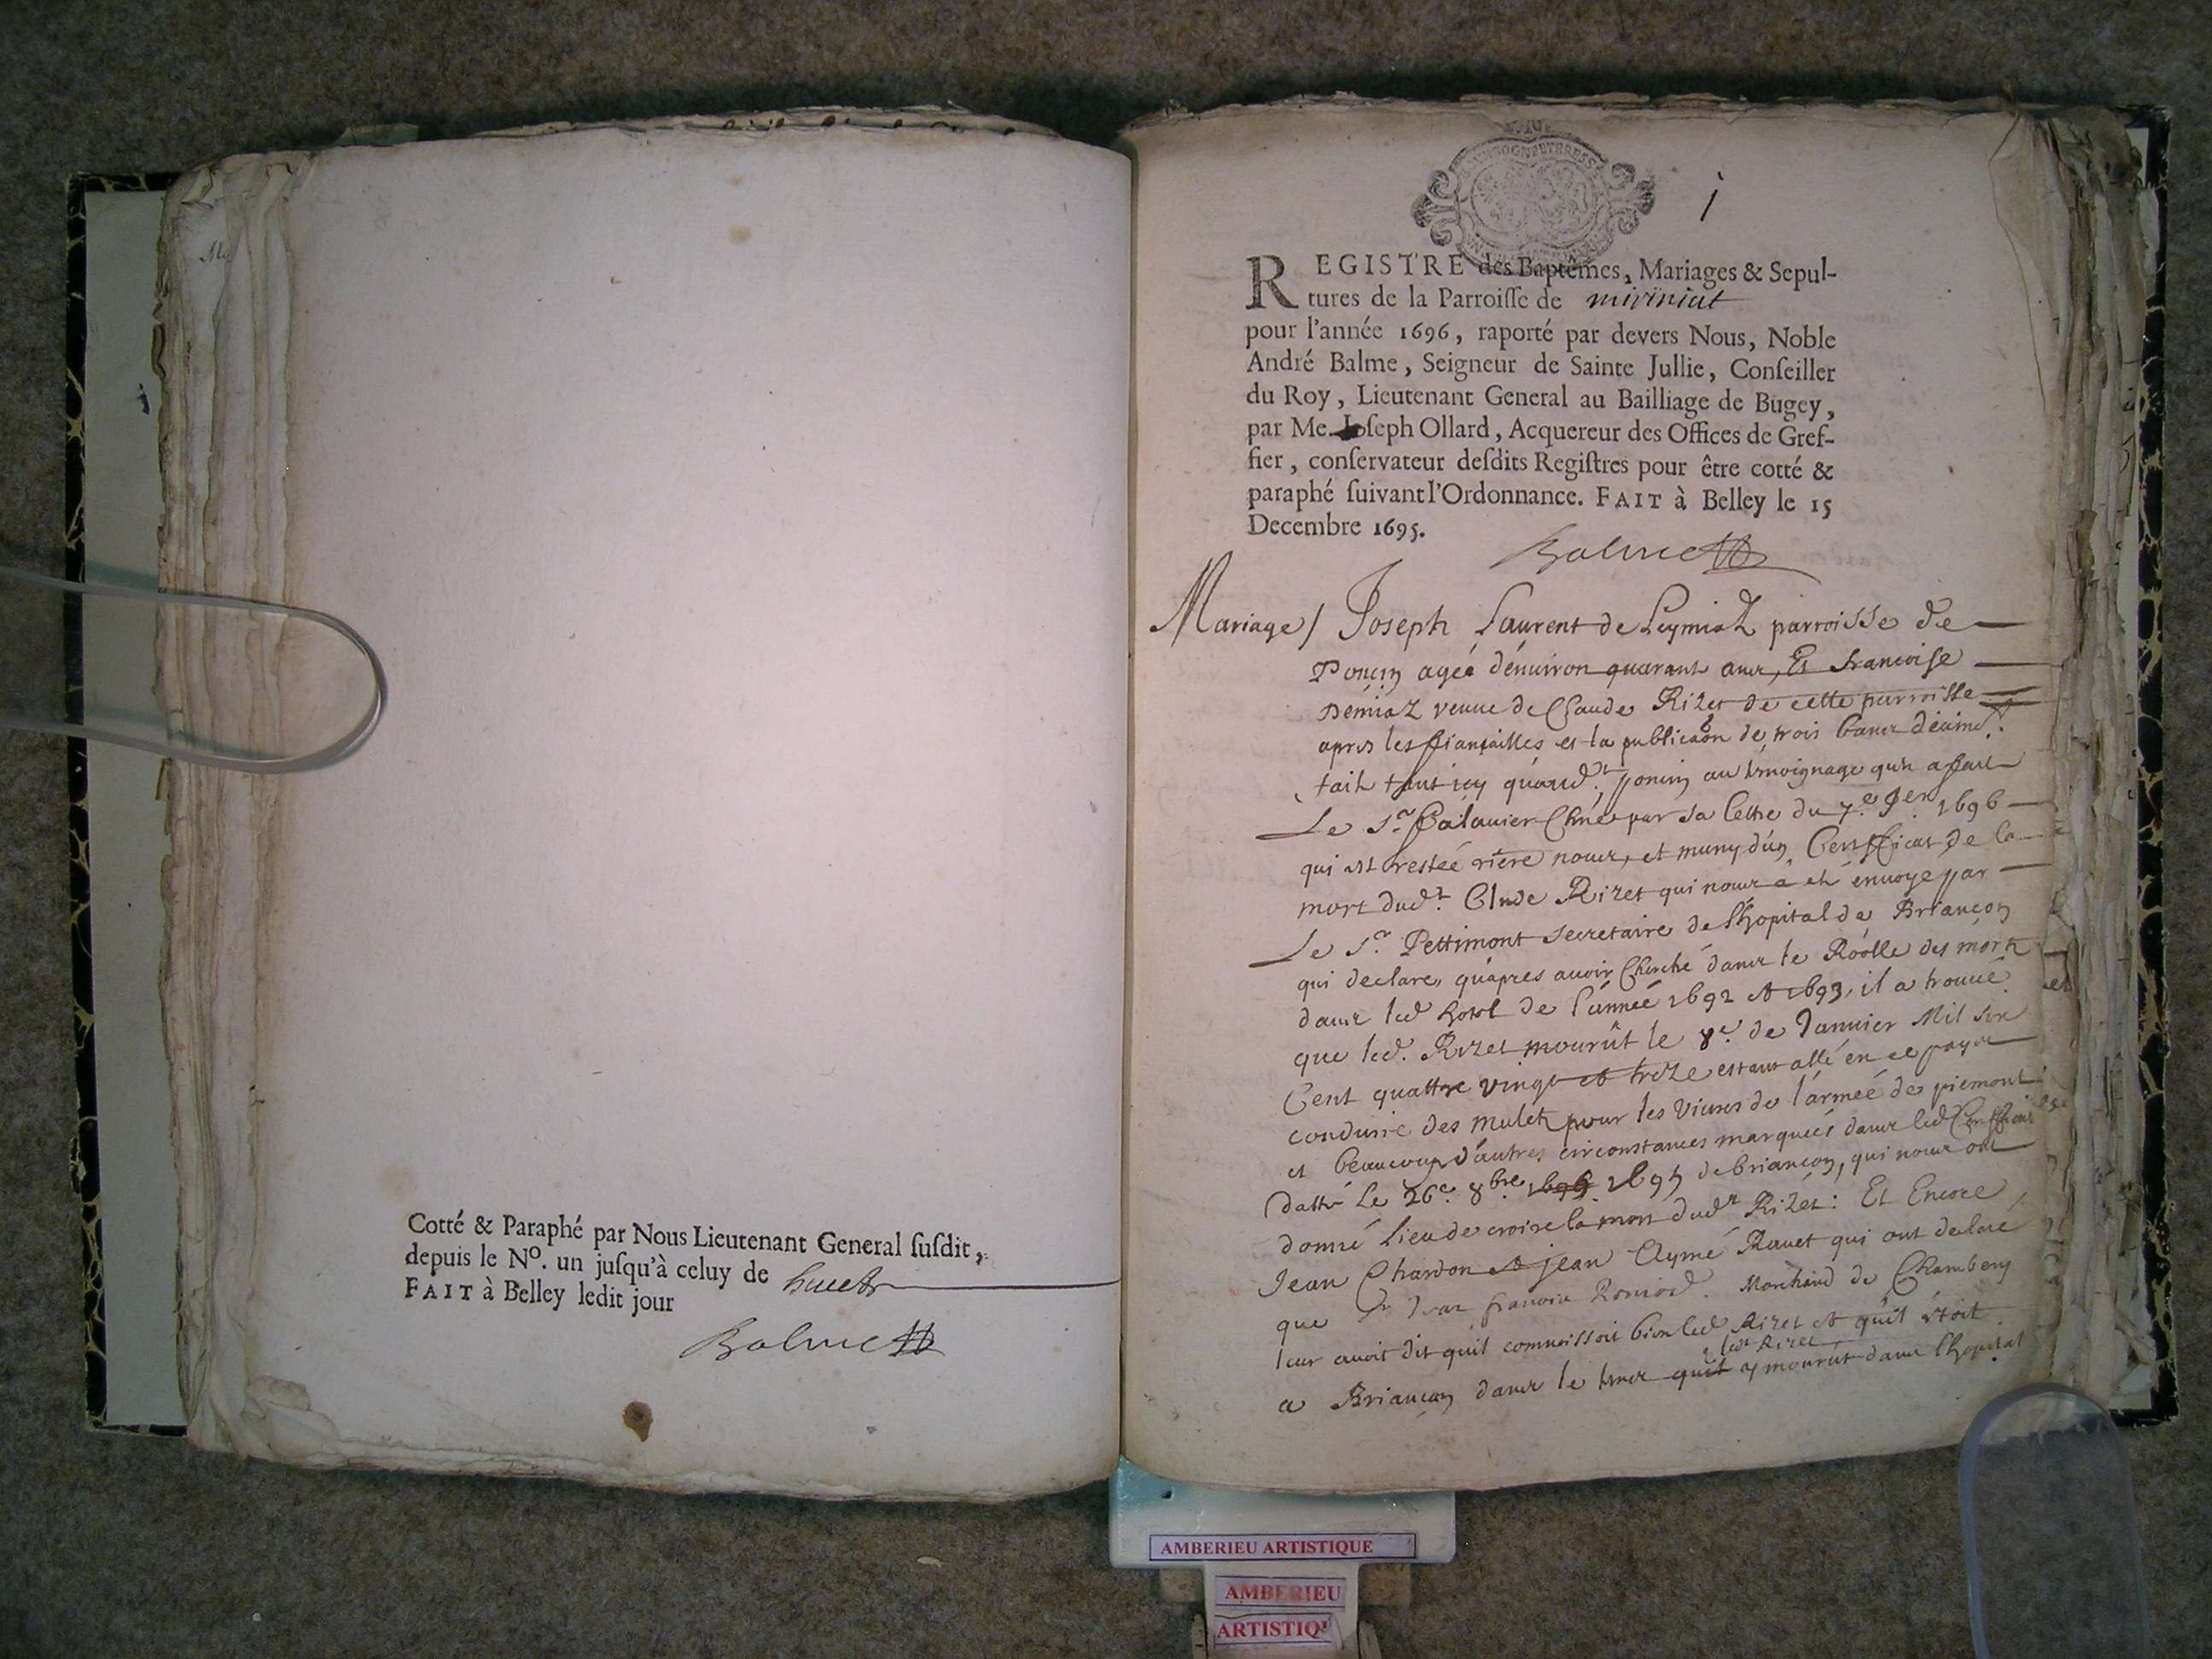 Cotté & Paraphé par Nous Lieutenant General susdit,
depuis le No. un jusqu'à celuy de huict
FAIT à Belley ledit jour
Balme
i
REGISTRE des Baptêmes, Mariages & Sepul-
tures de la Parroisse de
pour l'année 1696, raporté par devers Nous, Noble
André Balme, Seigneur de Sainte Jullie, Conseiller
du Roy, Lieutenant General au Bailliage de Bugey,
par Me. Joseph Ollard, Acquereur des Offices de Gref-
fier, conservateur desdits Registres pour être cotté &
paraphé suivant l'Ordonnance. FAIT à Belley le 15
Decembre 1695.
Balme
Mariage / Joseph Laurent de Leymiaz parroisse de
Poncin ageé dénuiron quarant ans, Et francoise
veuue de Claude Rizet de cette parroisse
apres les fiançailles et la publicaon de trois bans
fait tant icy Poncin au témoignage qu'en a fait
Le Sr par sa lettre du 7e 1696
qui est restée riere nous, et muny d'un Certificat de la
mort dudt Clude Rizet qui nous a eté enuoye par
Le Sr Pettimont secretaire de l'hopital de Briançon
qui declare, qu'apres auoir Cherché dans le Roolle des morts
dans led de l'année 1692 et 1693, il a trouué
que led. Rizet mourût le 8e de Januier Mil six
Cent quattre vingt et treze estant allé en ce pays
conduire des mulets pour les viures de l'armeé de piemont
et beaucoup d'autres circonstances marqueés dans led Certificat
datté Le 26e 8bre 1695 de briançon, qui nous ont
donné lieu de croire la mort dudt Rizet: Et Encore
Jean Chardon et jean Aymé Rauet qui ont declaré
que Marchand de Chambery
leur auoit dit quil connoissoit bien led Rizet et quil étoit
ledt Rizet
a Briançon dans le tems qu'il y mourût dans l'hopital
AMBERIEU ARTISTIQUE
AMBERIEU
ARTISTIQ